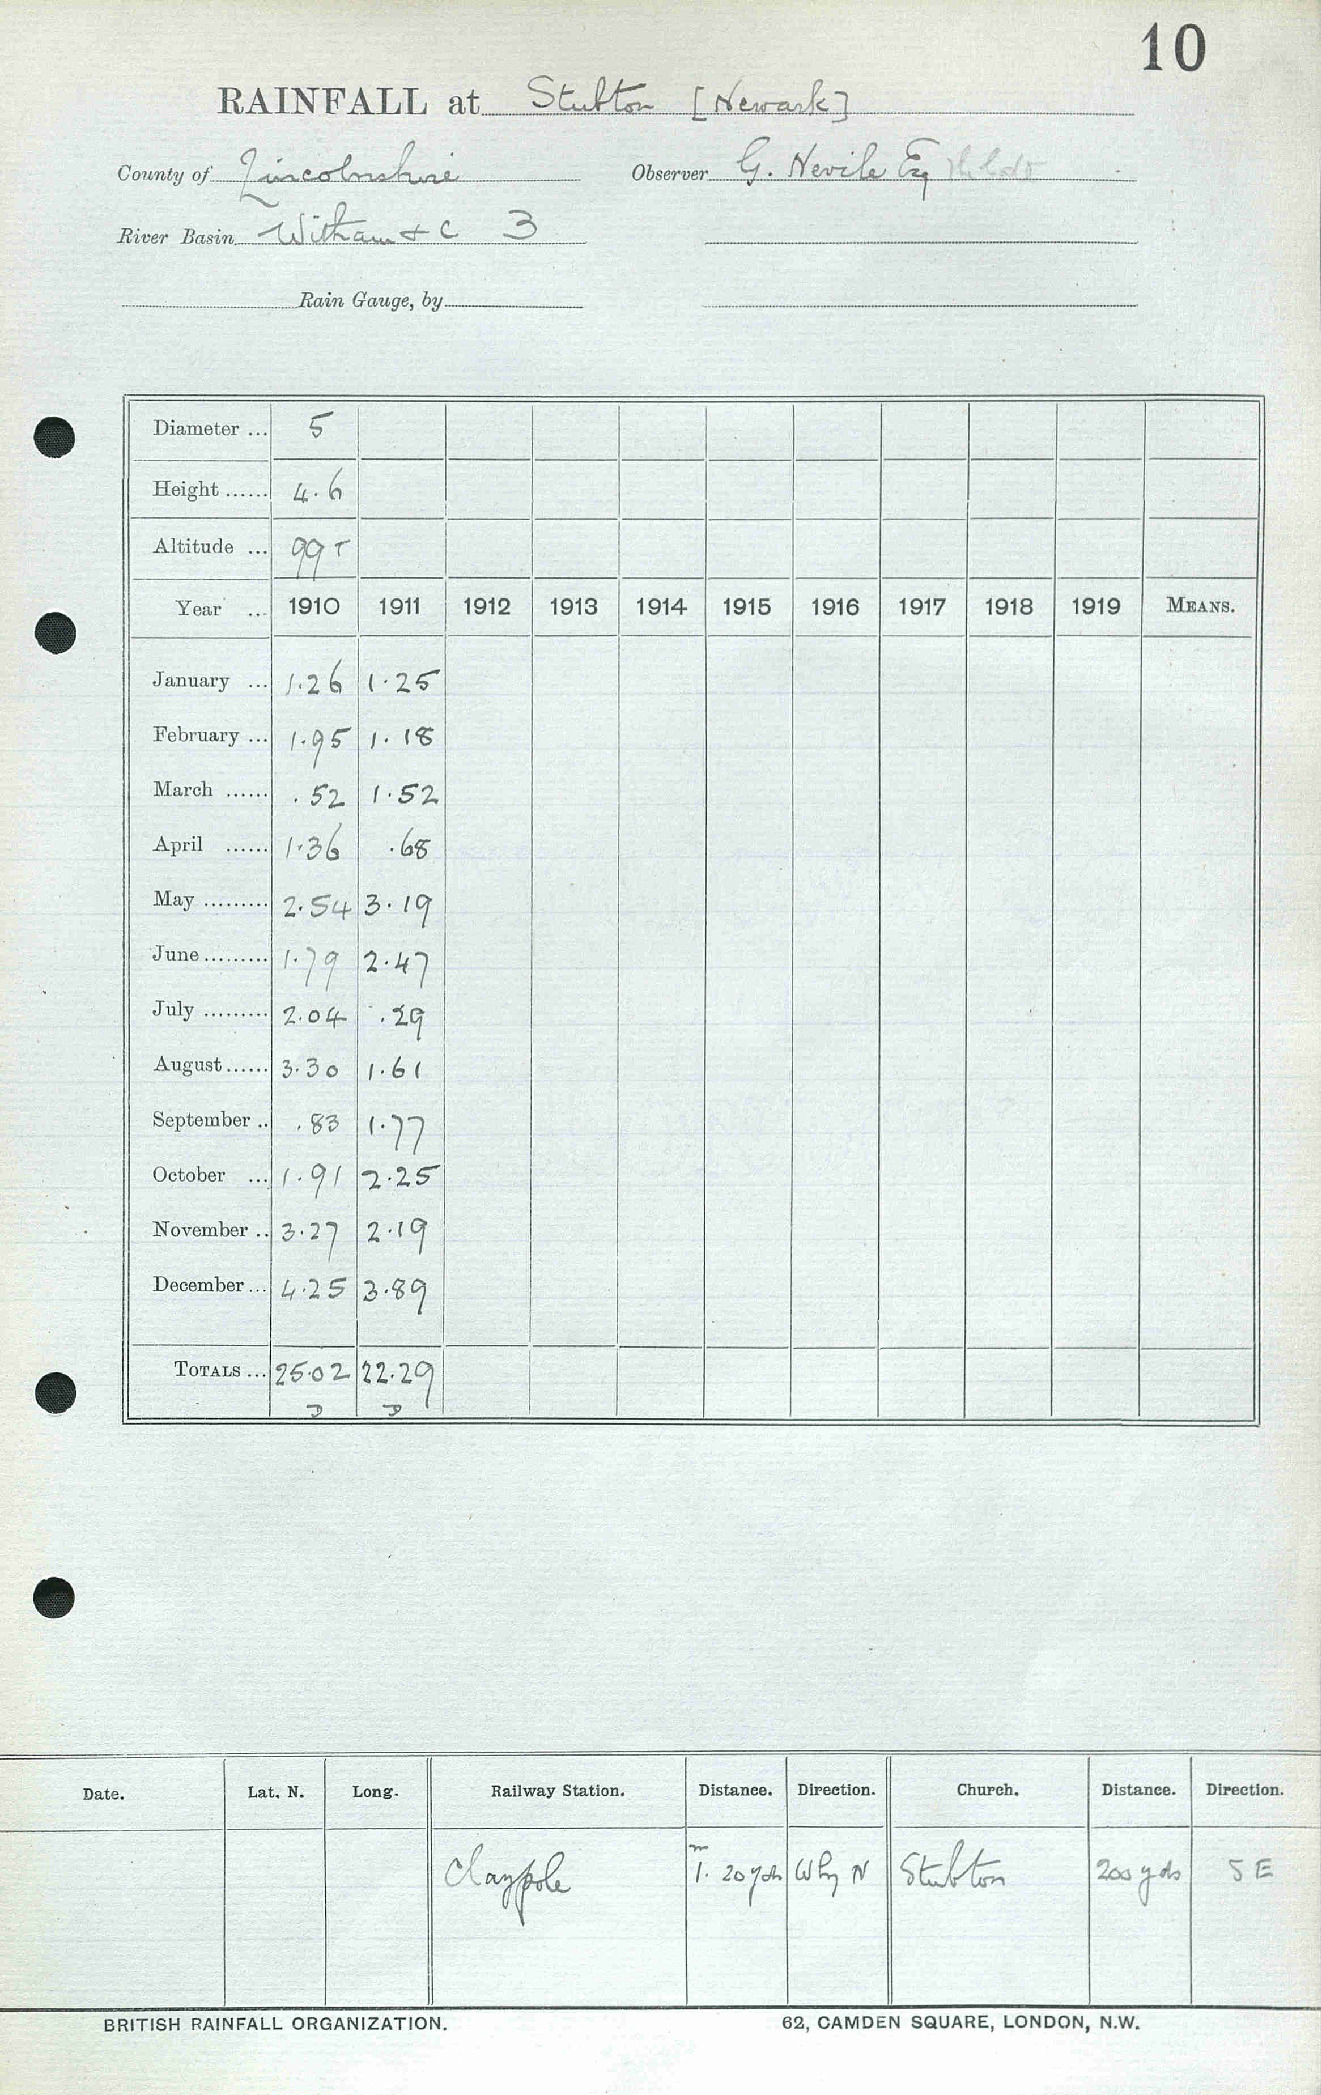 10
RAINFALL at Stubton [Newark]
County of Lincolnshire Observer G. Nevile Esq
River Basin Witham & C 3
Rain Gauge, by
Diameter ... 5
Height ...... 4.6
Altitude ... 99 T
Year ... 1910 1911 1912 1913 1914 1915 1916 1917 1918 1919 MEANS.
January ... 1.26 1.25
February ... 1.95 1.18
March ...... .52 1.52
April ...... 1.36 .68
May ......... 2.54 3.19
June ......... 1.79 2.47
July ......... 2.04 .29
August ...... 3.30 1.61
September .. .83 1.77
October ... 1.91 2.25
November .. 3.27 2.19
December ... 4.25 3.89
TOTALS ... 25.02 22.29
D D
Date. Lat. N. Long. Railway Station. Distance. Direction. Church. Distance. Direction.
Claypole 1. m 20 yds W by N Stubton 200 yds S E
BRITISH RAINFALL ORGANIZATION. 62, CAMDEN SQUARE, LONDON, N.W.